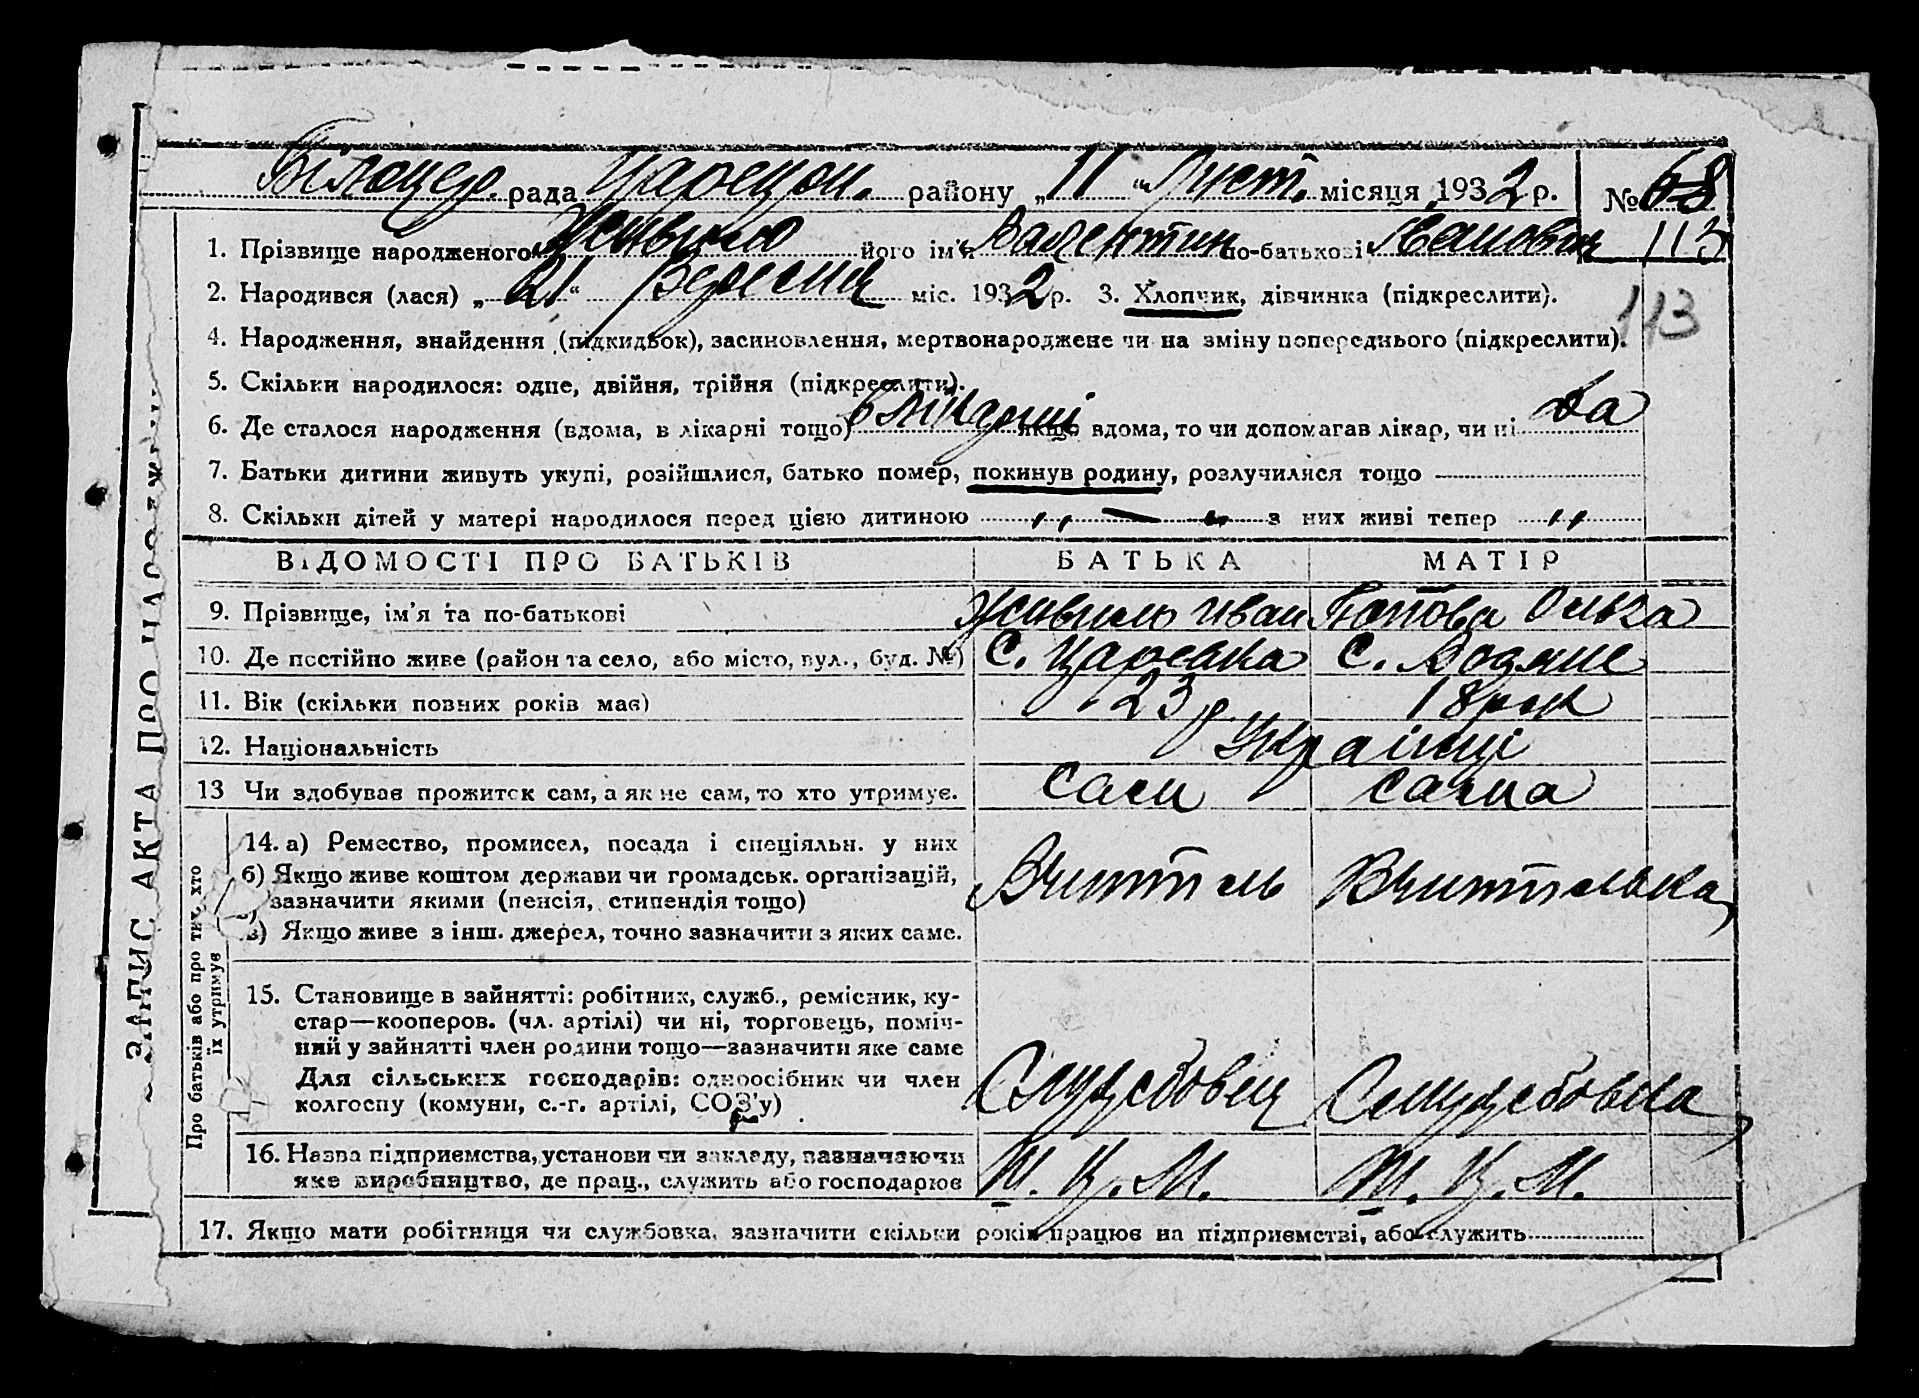 рада Царечан. району „11“ Лист. місяця 1932 р. № 68
1. Прізвище народженого його ім'я Валентин по-батькові Іванович 113
2. Народився (лася) „21“ Вересня міс. 1932 р. 3. Хлопчик, дівчинка (підкреслити).
113
4. Народження, знайдення (підкидьок), засиновлення, мертвонароджене чи на зміну попереднього (підкреслити).
5. Скільки народилося: одне, двійня, трійня (підкреслити).
6. Де сталося народження (вдома, в лікарні тощо) в лікарні якщо вдома, то чи допомагав лікар, чи ні да
7. Батьки дитини живуть укупі, розійшлися, батько помер, покинув родину, розлучилися тощо
8. Скільки дітей у матері народилося перед цією дитиною „ — „ з них живі тепер „
ВІДОМОСТІ ПРО БАТЬКІВ БАТЬКА МАТІР
9. Прізвище, ім'я та по-батькові Иван Попова Ольга
10. Де постійно живе (район та село, або місто, вул., буд. №) с. Царечанка с. Водяне
11. Вік (скільки повних років має) 23 р 18 рок
12. Національність Українці
13 Чи здобував прожиток сам, а як не сам, то хто утримує. сам сама
14. а) Ремество, промисел, посада і спеціяльн. у них
б) Якщо живе коштом держави чи громадськ. організацій,
зазначити якими (пенсія, стипендія тощо)
в) Якщо живе з інш. джерел, точно зазначити з яких саме.
Вчитель Вчителька
15. Становище в зайнятті: робітник, служб., ремісник, ку-
стар—кооперов. (чл. артілі) чи ні, торговець, поміч-
ний у зайнятті член родини тощо—зазначити яке саме
Для сільських господарів: одноосібник чи член
колгоспу (комуни, с.-г. артілі, СОЗ'у)
Службовець Службовка
16. Назва підприємства, установи чи закладу, зазначаючи
яке виробництво, де прац., служить або господарює
Ш. Ц. М. Ш. Ц. М.
17. Якщо мати робітниця чи службовка, зазначити скільки років працює на підприємстві, або служить
Про батьків або про тих, хто
їх утримує
ЗАПИС АКТА ПРО